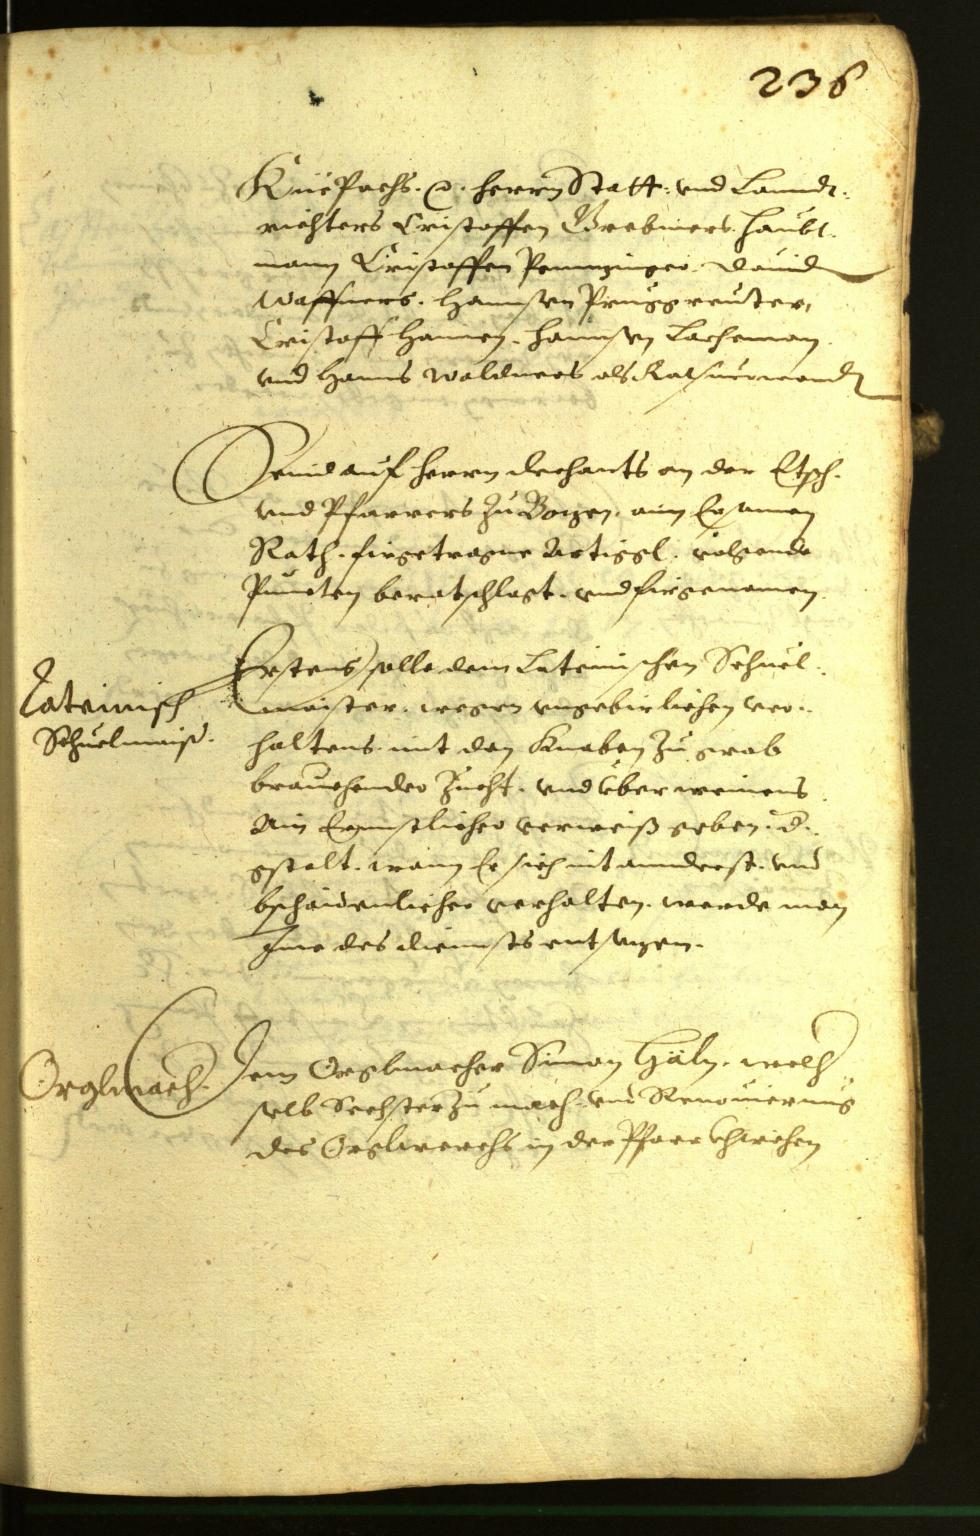 236
Kuepachs. Herrn Statt: vnd Lanndt-
richters Cristoffen Grebmers. Haubt-
mann Cristoffen Pennzinger. Dauid
Waffners. Hannsen Pruggreuter,
Cristoff Hamen. Hannsen Lachman
vnd Hanns Waldners als Ratsuerwandt
Seind auf Herrn dechants an der Etsch.
vnd Pfarrers zu Bozen. aim Ersamen
Rath. firgetragne Artiggl. volgende
Puncten beratschlagt. vnd firgenomen
Lateinisch
Schuelmaist.
Erstens solle dem Lateinischen Schuel-
maister. wegen vngebirlichen ver-
haltens. mit den Knaben zu grab
brauchender Zucht. vnd vber weinens
Ain Ernnstlicher verweiß geben. d.
gstalt. wann Er sich nit annderst. vnd
bschaidenlicher verhalten. werde man
Ime des diennsts entsezen.
Orglmach.
Dem Orglmacher Simon Häln. welch
selb Sechster zu mach. vnd Renouierung
des Orglwerchs in der Pfarrkhirchen